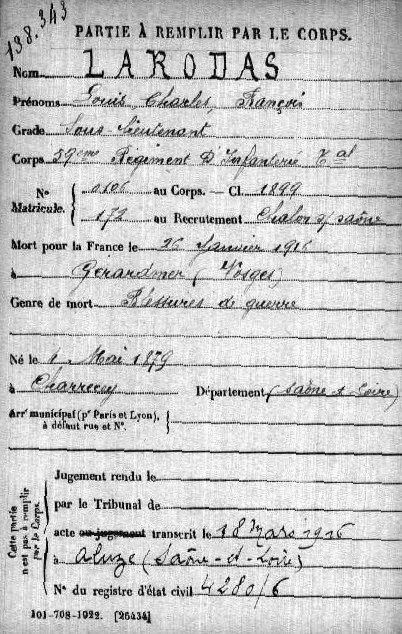 138.343
PARTIE À REMPLIR PAR LE CORPS.
Nom LARODAS
Prénoms Louis Charles François
Grade Sous-lieutenant
Corps 59eme Régiment d'Infanterie Tal
N° Matricule. { 0106 au Corps. — Cl. 1899
172 au Recrutement Chalon s/ Saône
Mort pour la France le 26 Janvier 1916
à Gérardmer (Vosges)
Genre de mort Blessures de guerre
Né le 1 Mai 1879
à Charrecey Département (Saône et Loire)
Arrt municipal (pr Paris et Lyon), à défaut rue et N°.
Cette partie n'est pas à remplir par le Corps.
Jugement rendu le
par le Tribunal de
acte ou jugement transcrit le 18 Mars 1916
à Aluze (Saône-et-Loire)
N° du registre d'état civil 4280/6
101-708-1922. [26434]